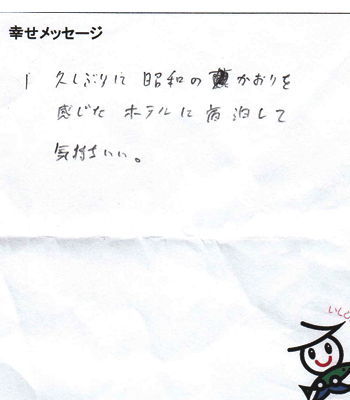 幸せメッセージ
1 久しぶりに 昭和の かおりを
感じた ホテルに 宿泊して
気持ちいい。